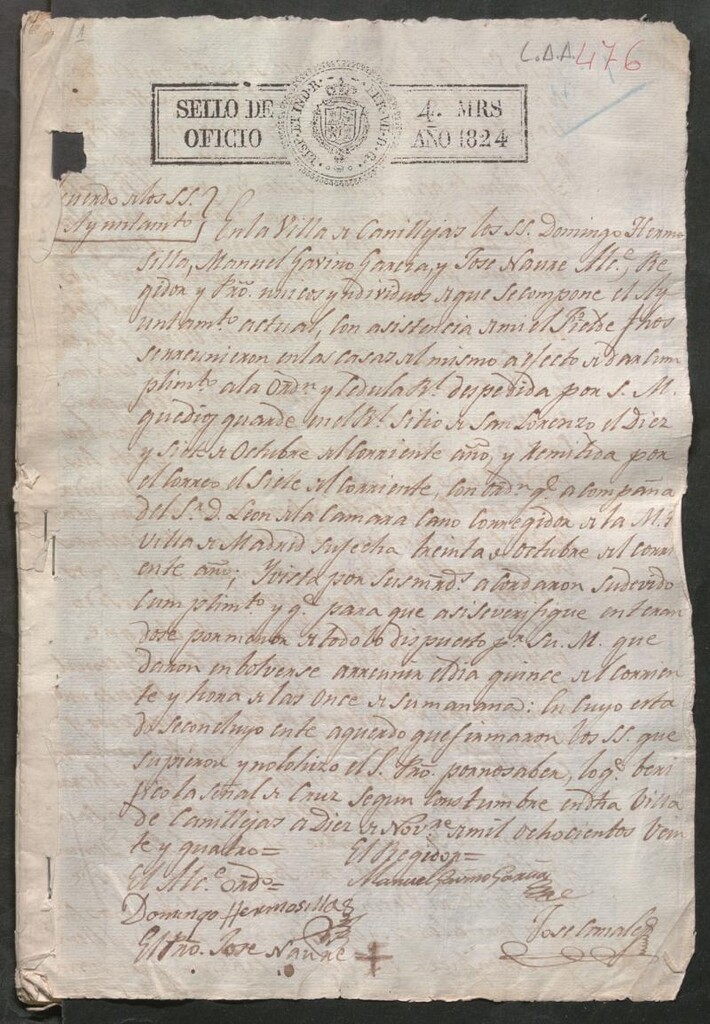 L.A.A. 476
SELLO DE OFICIO
HISP. ET IND. R. FER. VII. D. G.
4. MRS
AÑO 1824
cuerdo de los SS.
Ayuntamto
En la Villa de Canillejas los SS. Domingo Hermo
silla, Manuel Gavino Garcia, y Jose Naure Alce, Re
gidor y Pro. unicos yndividuos de que se compone el Ay
untamto actual, con asistencia de mi el Fiel de fhos
se reunieron en las casas del mismo a efecto de dar cum
plimto a la Ordn y Cedula Rl despedida por S. M.
que dios guarde en el Rl Sitio de San Lorenzo el Diez
y Siete de Octubre del corriente año, y Remitida por
el correo el Siete del corriente, con ordn qe acompaña
del Sr D. Leon de la Camara Cano Corregidor de la M. H
Villa de Madrid su fecha treinta de Octubre del corri
ente año; Y vista por sus mrds acordaron su devido
cumplimto y qe para que asi se verifique enteran
dose por menor de todo lo dispuesto pr Su. M. que
daron en bolverse a rreunir el dia quince del corrien
te y hora de las Once de su mañana: En cuyo esta
do se concluyo este aquerdo que firmaron los SS. que
supieron y no lo hizo el S. Pro. por no saber, lo qe beri
fico la señal de Cruz segun Constumbre en dha Villa
de Canillejas a Diez de Novre de mil ochocientos Vein
te y quatro=
El Regidor=
El Alce ordo=
Manuel Gavino Garcia
Domingo Hermosilla
Jose Gonzalez
El Pro. Jose Naure +